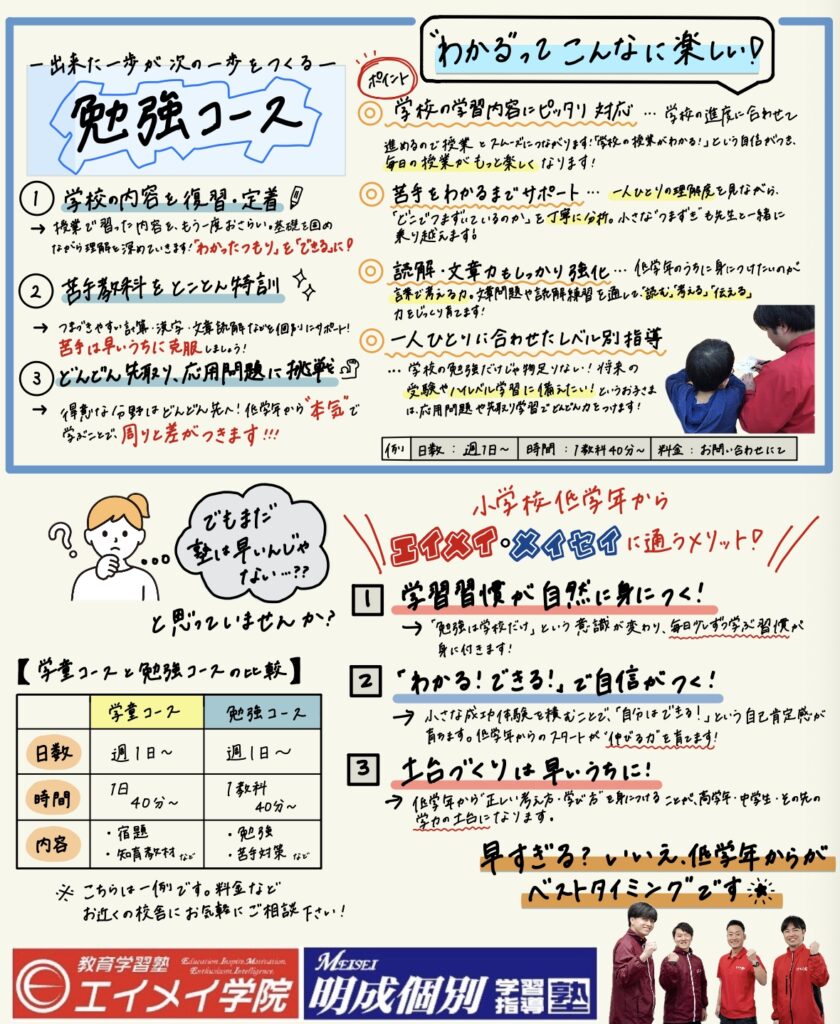 ー出来た一歩が次の一歩をつくるー
勉強コース
① 学校の内容を復習・定着
→ 授業で習った内容を、もう一度おさらい。基礎を固め
ながら理解を深めていきます！"わかったつもり"を"できる"に！
② 苦手教科をとことん特訓
→ つまづきやすい計算・漢字・文章読解などを個別にサポート！
苦手は早いうちに克服しましょう！
③ どんどん先取り、応用問題に挑戦
→ 得意な分野はどんどん先へ！低学年から"本気"で
学ぶことで、周りと差がつきます!!!
"わかる"ってこんなに楽しい！
ポイント
◎ 学校の学習内容にピッタリ対応 … 学校の進度に合わせて
進めるので授業とスムーズにつながります！「学校の授業がわかる！」という自信がつき、
毎日の授業がもっと楽しくなります！
◎ 苦手をわかるまでサポート … 一人ひとりの理解度を見ながら、
「どこでつまずいているのか」を丁寧に分析。小さな"つまずき"も先生と一緒に
乗り越えます。
◎ 読解・文章力もしっかり強化 … 低学年のうちに身につけたいのが
言葉で考える力。文章問題や読解練習を通して、"読む""考える""伝える"
力をじっくり育てます！
◎ 一人ひとりに合わせたレベル別指導
… 学校の勉強だけじゃ物足りない！将来の
受験やハイレベル学習に備えたい！というお子さま
は、応用問題や先取り学習でどんどん力をつけます！
例 日数：週1日〜 時間：1教科40分〜 料金：お問い合わせにて
でもまだ
塾は早いんじゃ
ない…??
と思っていませんか？
【学童コースと勉強コースの比較】
学童コース 勉強コース
日数 週1日〜 週1日〜
時間 1日40分〜 1教科40分〜
内容 ・宿題 ・知育教材 など ・勉強 ・苦手対策 など
※ こちらは一例です。料金など
お近くの校舎にお気軽にご相談下さい！
小学校低学年から
エイメイ・メイセイに通うメリット！
1 学習習慣が自然に身につく！
→ 「勉強は学校だけ」という意識が変わり、毎日少しずつ学ぶ習慣が
身に付きます！
2 「わかる！できる！」で自信がつく！
→ 小さな成功体験を積むことで、「自分はできる！」という自己肯定感が
育ちます。低学年からのスタートが"伸びる力"を育てます！
3 土台づくりは早いうちに！
→ 低学年から"正しい考え方・学び方"を身につけることが、高学年・中学生・その先の
学力の土台になります。
早すぎる？いいえ、低学年からが
ベストタイミングです
教育学習塾 Education. Inspire. Motivation.
Enthusiasm. Intelligence.
エイメイ学院
MEISEI
明成個別学習指導塾